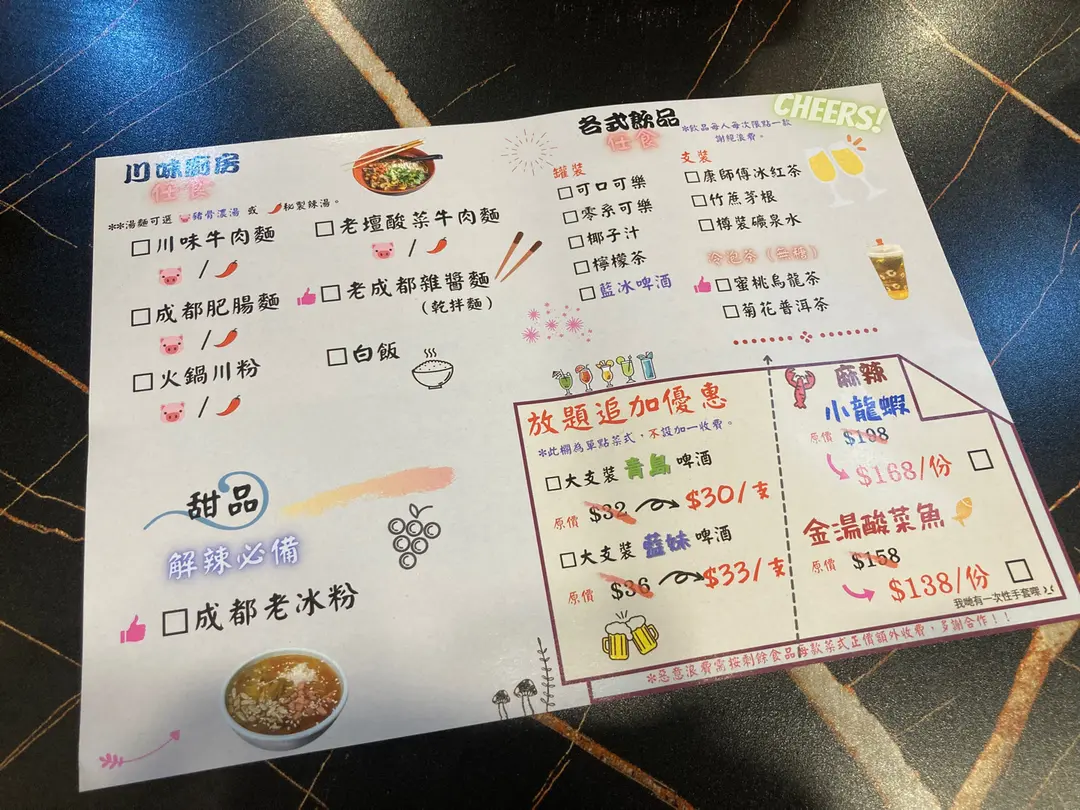 川味廚房
任食
**湯麵可選 豬骨濃湯 或 秘製辣湯。
川味牛肉麵
/
成都肥腸麵
/
火鍋川粉
/
老壇酸菜牛肉麵
/
老成都雜醬麵
(乾拌麵)
白飯
甜品
解辣必備
成都老冰粉
CHEERS!
各式飲品
任食
*飲品每人每次限點一款
謝絕浪費。
罐裝
可口可樂
零系可樂
椰子汁
檸檬茶
藍冰啤酒
支裝
康師傅冰紅茶
竹蔗茅根
樽裝礦泉水
冷泡茶(無糖)
蜜桃烏龍茶
菊花普洱茶
放題追加優惠
*此欄為單點菜式,不設加一收費。
大支裝青島啤酒
原價 $32 $30/支
大支裝藍妹啤酒
原價 $36 $33/支
麻辣
小龍蝦
原價 $198
$168/份
金湯酸菜魚
原價 $158
$138/份
我哋有一次性手套㗎
*惡意浪費需按剩餘食品每款菜式正價額外收費,多謝合作!!